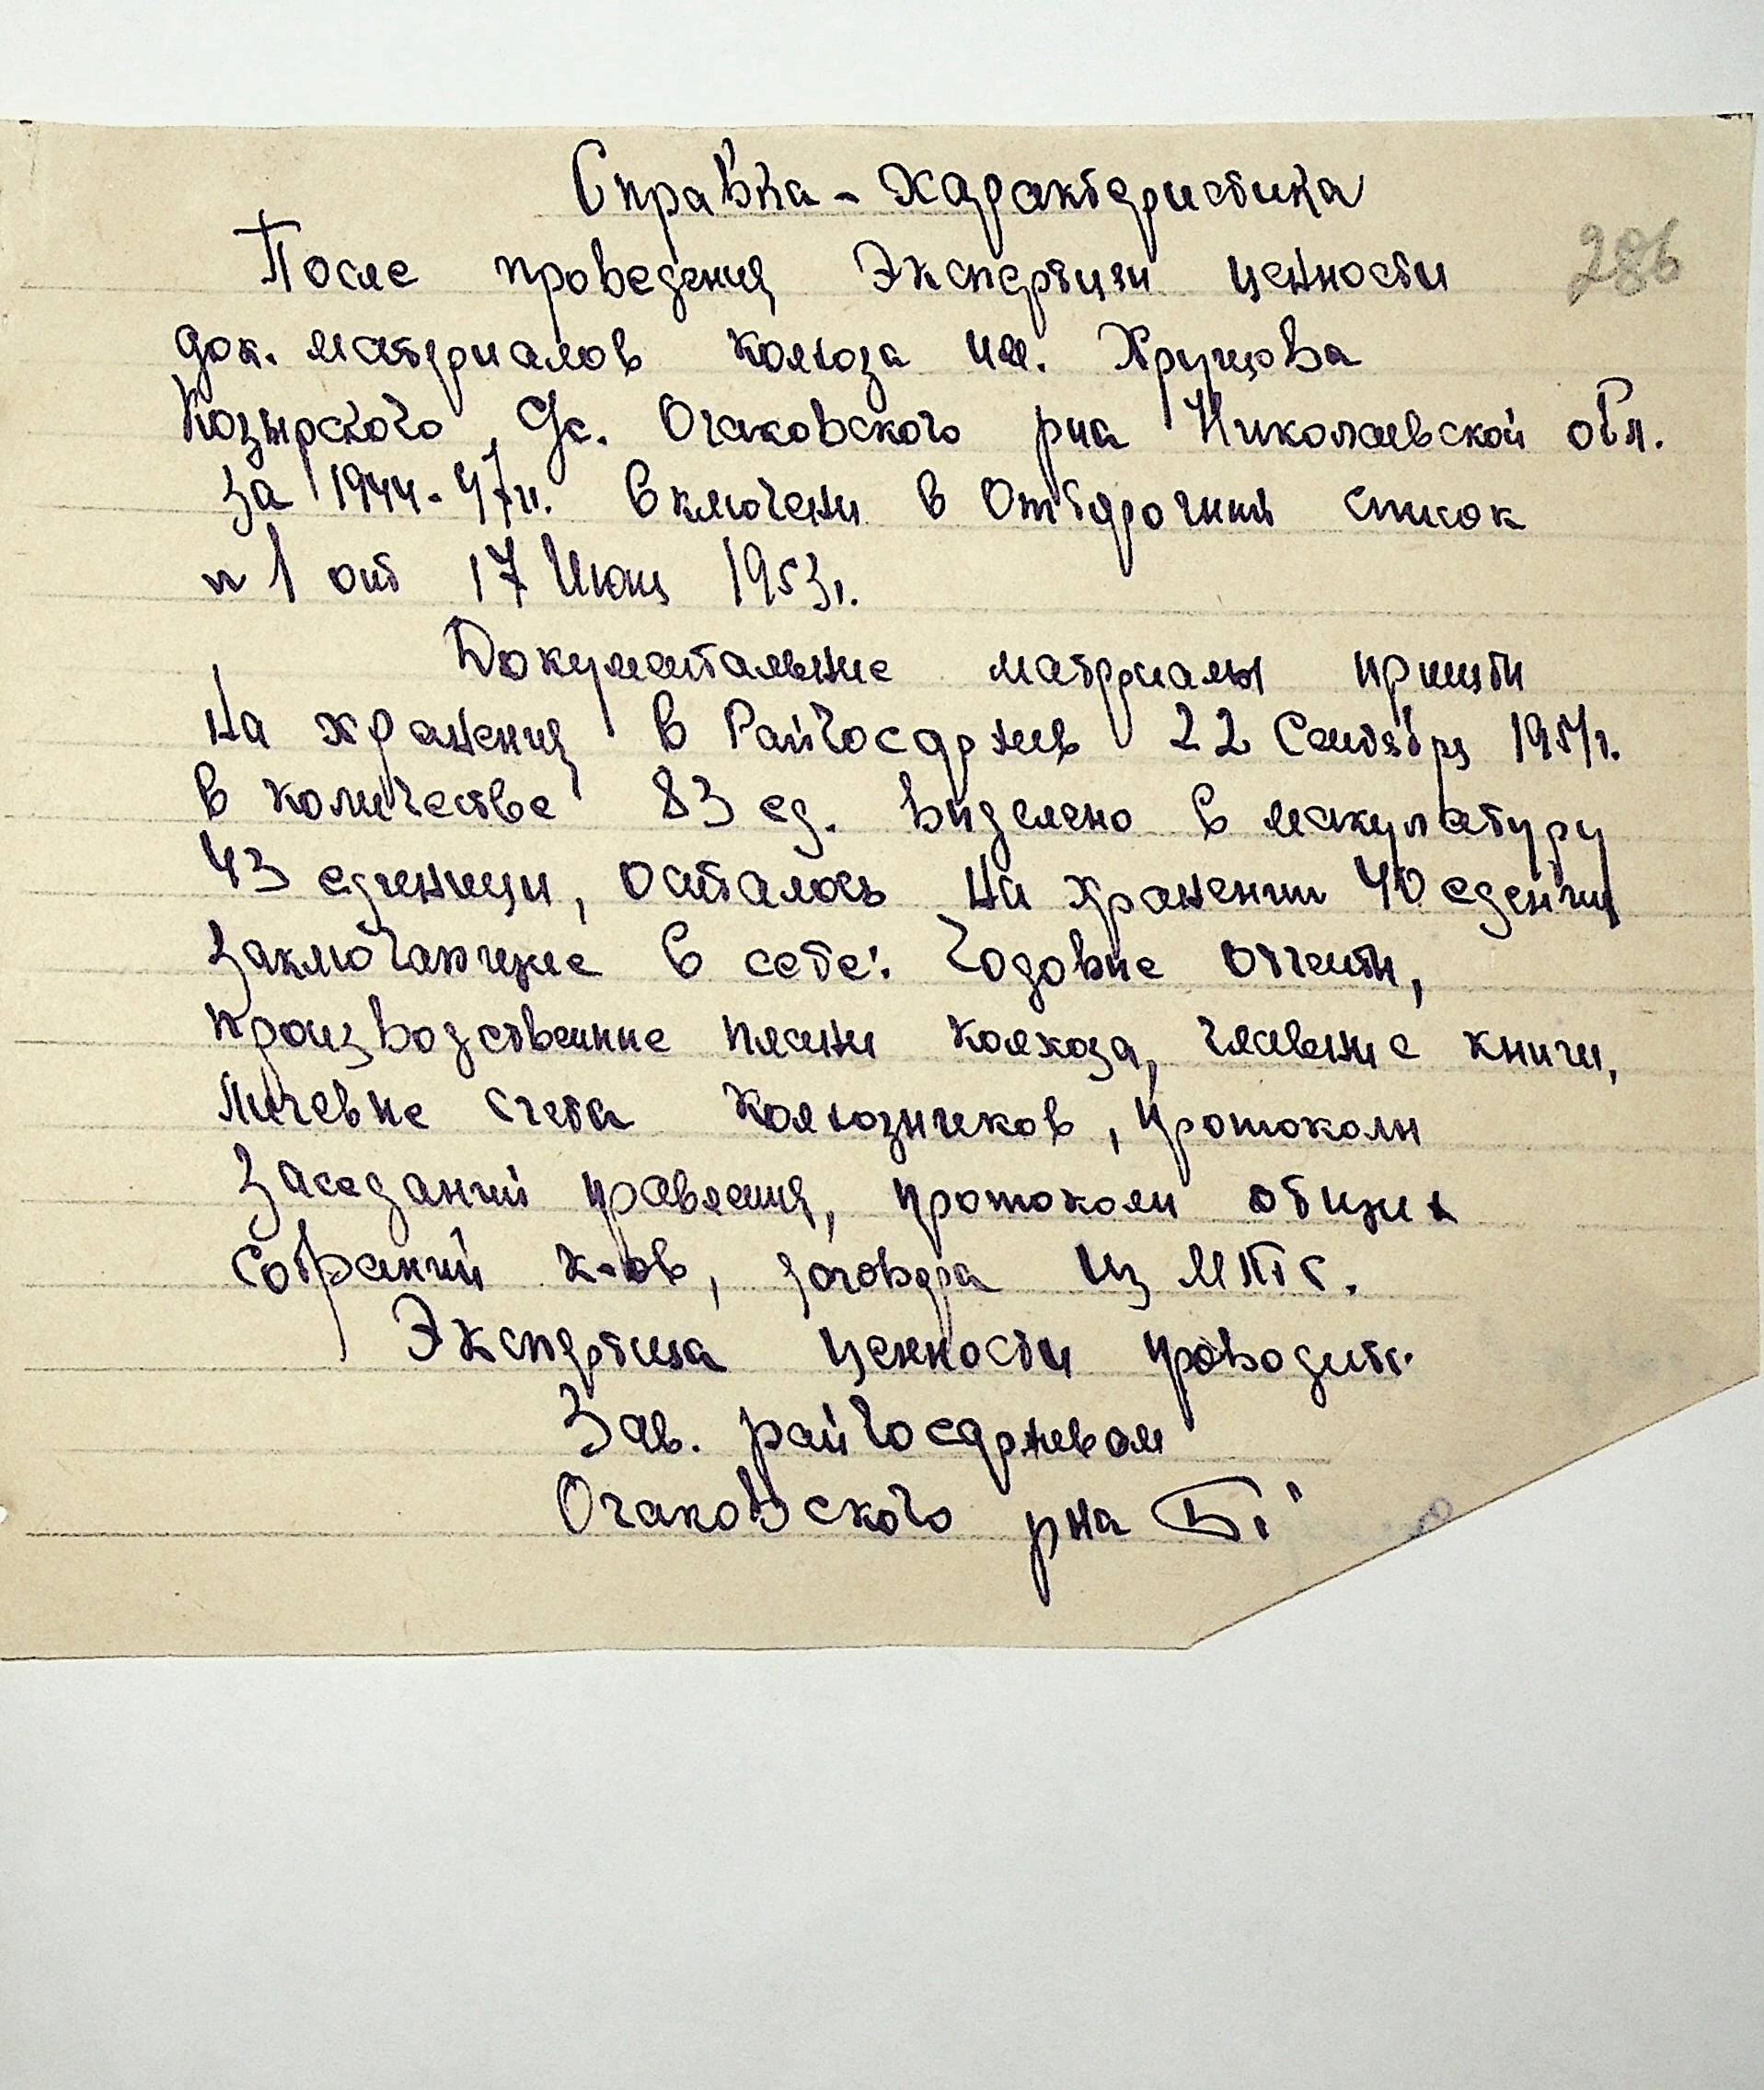 Справка - характеристика
286
После проведения Экспертизи ценности
док. материалов колхоза им. Хрущова
Козырского с/с. Очаковского рна Николаевской обл.
за 1944-47гг. Включени в Отборочний список
№1 от 17 Июня 1953г.
Документальние материалы приняти
На хранения в Райгосархив 22 Сентября 1951г.
в количестве 83 ед. виделено в макулатуру
43 единици, осталось на хранении 40 едениц
заключающие в себе: Годовие отчети,
производственние плани колхоза, главние книги,
личевие счета колхозников, протоколи
заседаний правления, протоколи общих
собраний к-ов, договора из МТС.
Экспертиза ценности проводит.
Зав. райгосархивом
Очаковского рна